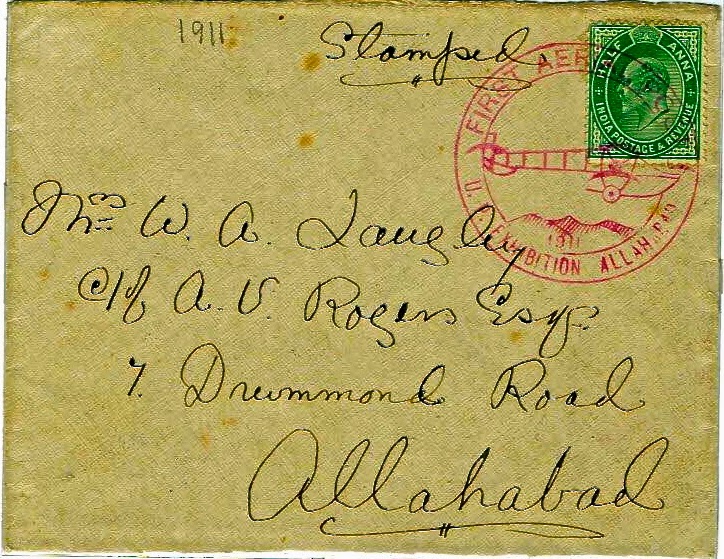 1911
Stamped
HALF ANNA
INDIA POSTAGE & REVENUE
FIRST AER
U. P. EXHIBITION ALLAHABAD
1911
Mrs W. A. Langley
c/o A. V. Rogers Esqr.
7. Drummond Road
Allahabad